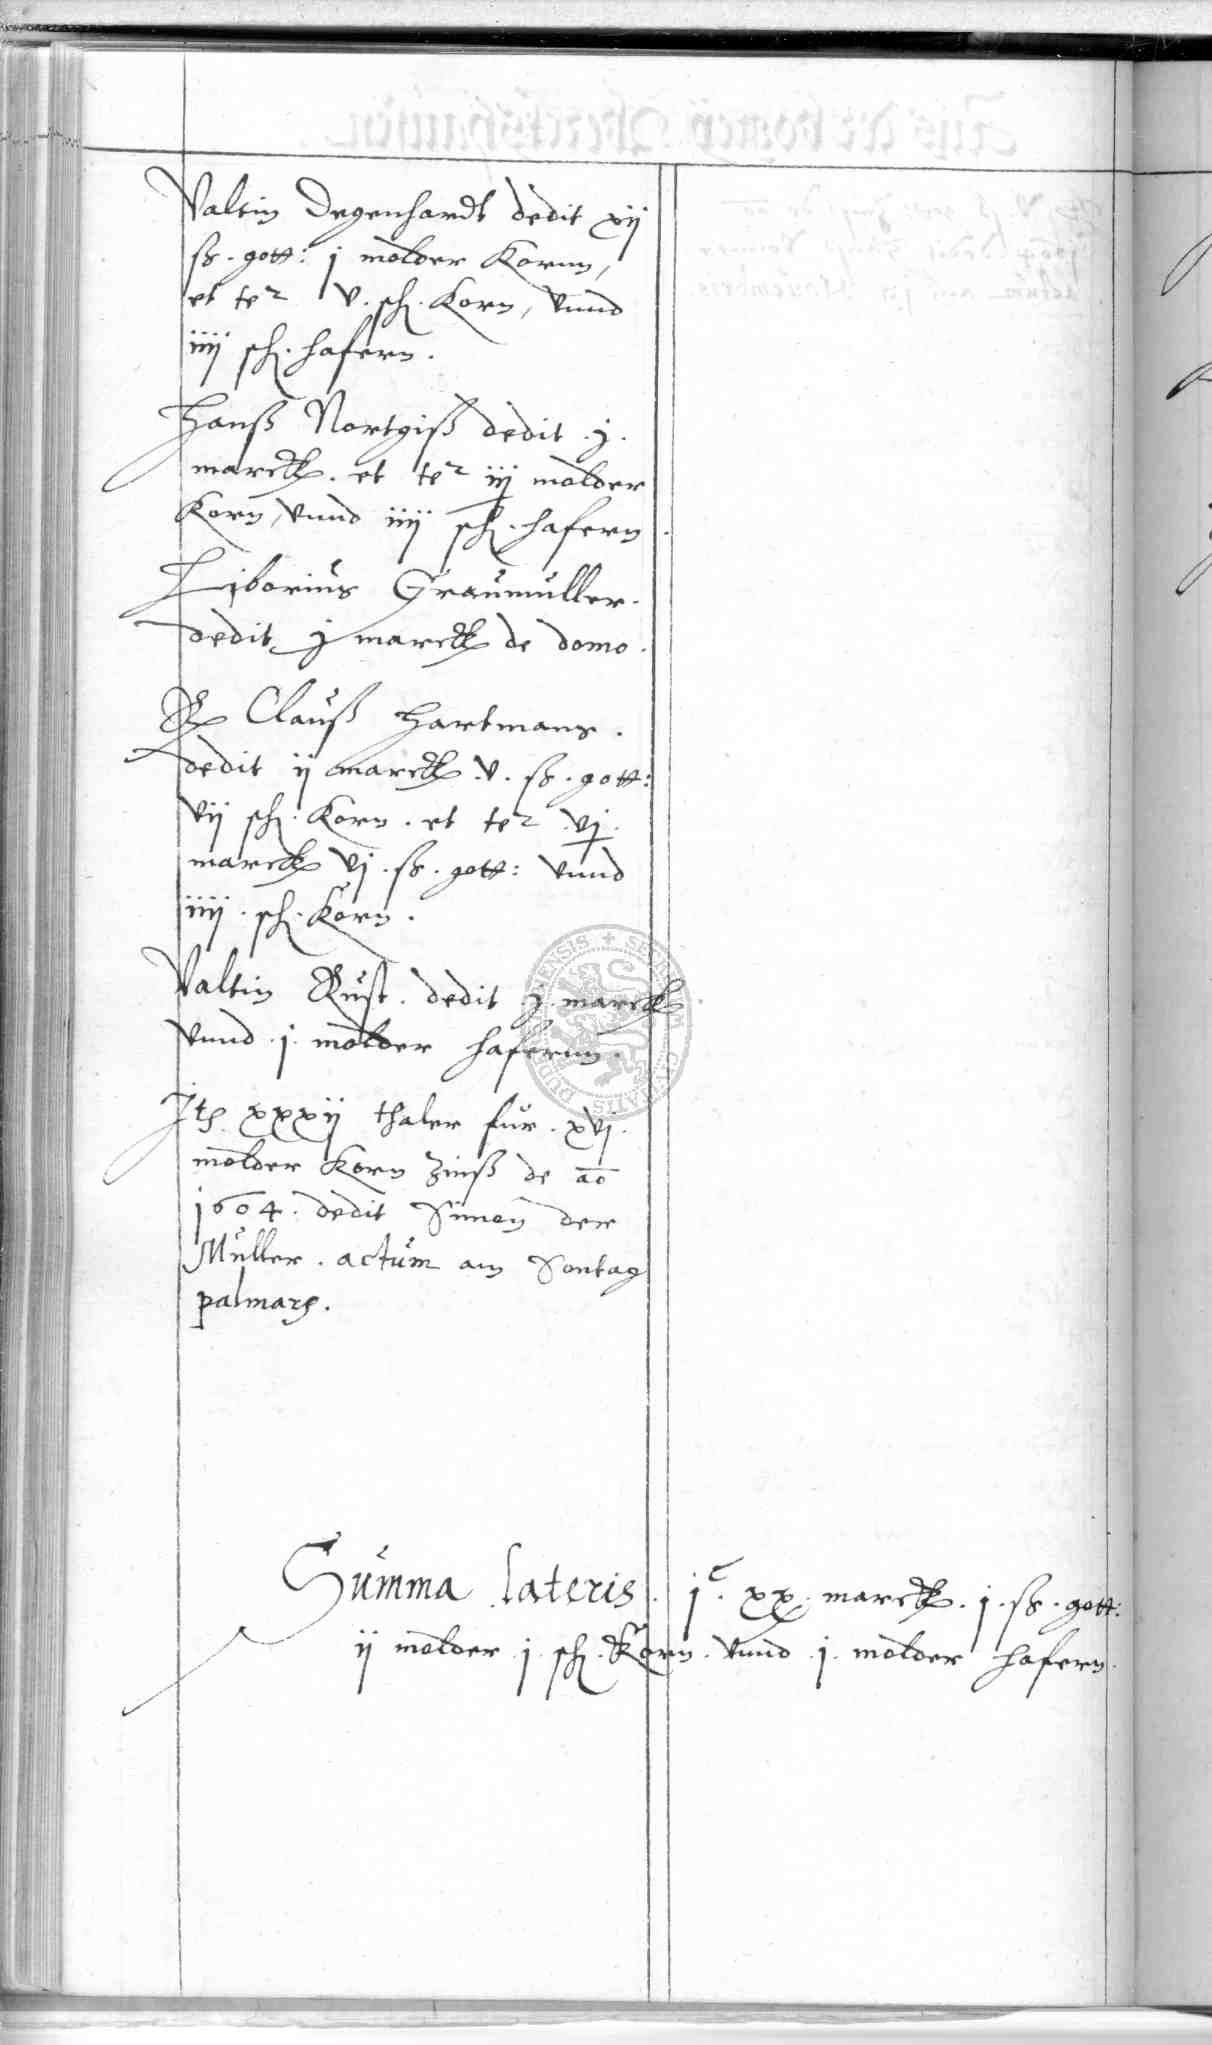 Valtin Degenhardt dedit xij
ß. gott: j molder Kornn,
et te² v. sch. Korn, vnnd
iiij sch. hafern.
Hanß Nortgiß dedit .j.
marck. et te² iij molder
Korn, vnnd iiij sch. hafern.
Liborius Graumuller.
dedit j marck de domo.
Clauß Hartmans.
dedit ij marck v. ß. gott:
vij sch. Korn. et te² vj.
marck vj. ß. gott: vnnd
iiij. sch. Korn.
Valtin Rust. dedit j. marck
vnnd .j. molder hafernn.
Jt xxxij thaler fur. xvj.
molder Korn Zinß de ao
1604. dedit Simon der
Muller. actum am Sontag
palmarg.
Summa lateris. jc. xx. marck. j. ß. gott:
ij molder .j. sch. Korn. vnnd .j. molder hafern.
SIGILLUM CIVITATIS DUDERSTADENSIS